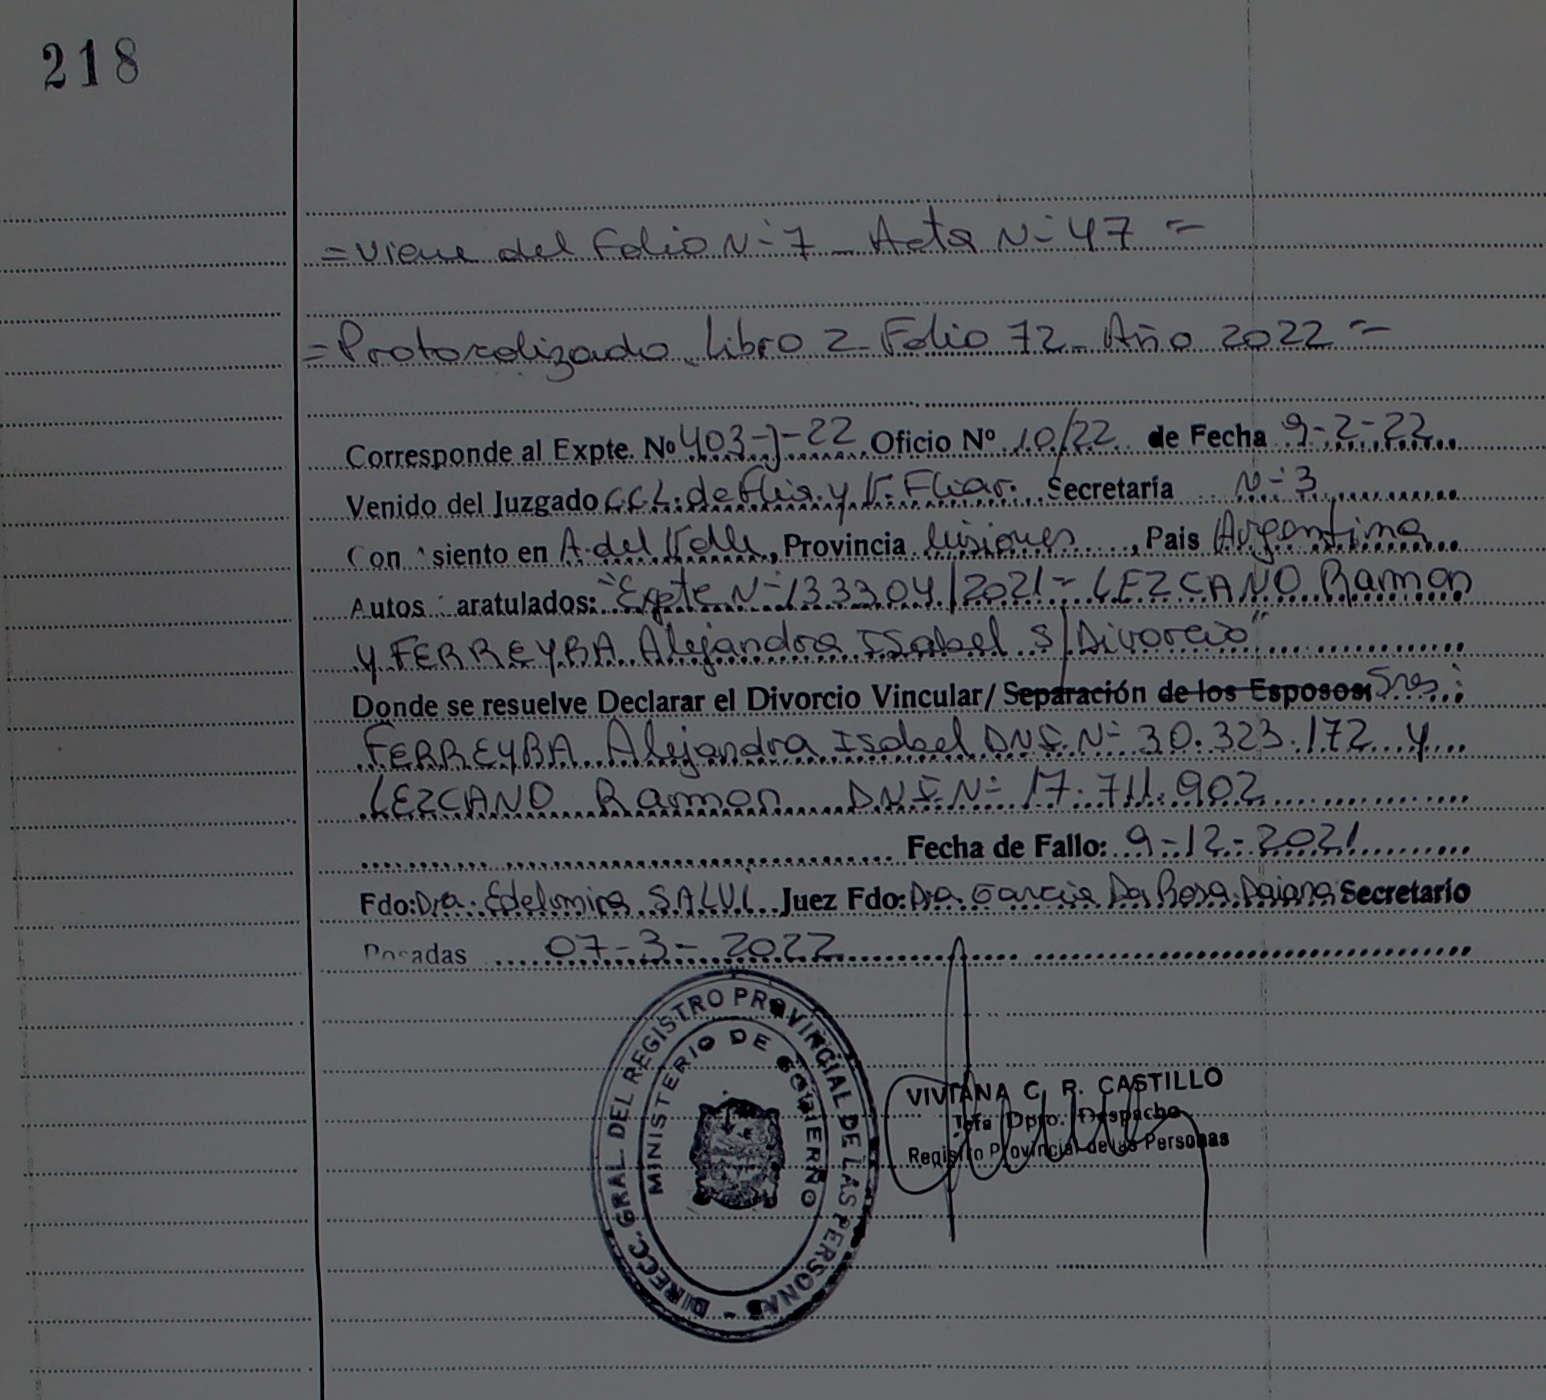 218
= Viene del Folio N- 7 _ Acta N- 47 =
= Protocolizado Libro 2 _ Folio 72 _ Año 2022 =
Corresponde al Expte. Nº 403-J-22 Oficio Nº 10/22 de Fecha 9-2-22
Venido del Juzgado C.C.L. de Flia. y V. Fliar. Secretaría N- 3
Con siento en A. del Valle, Provincia Misiones, Pais Argentina
Autos aratulados: "Expte N- 133304/2021 - LEZCANO Ramon
y FERREYRA Alejandra Isabel S/Divorcio"
Donde se resuelve Declarar el Divorcio Vincular/ Separación de los Esposos: Sres:
FERREYRA Alejandra Isabel DNI N- 30.323.172 y
LEZCANO Ramon DNI N- 17.711.902
Fecha de Fallo: 9-12-2021
Fdo: Dra. Edelomira SALVI. Juez Fdo: Dra. Garcia Da Rosa Daiana Secretario
Posadas 07-3-2022
DIRECC. GRAL. DEL REGISTRO PROVINCIAL DE LAS PERSONAS -
MINISTERIO DE GOBIERNO
VIVIANA C. R. CASTILLO
Jefa Dpto. Despacho
Registro Provincial de las Personas